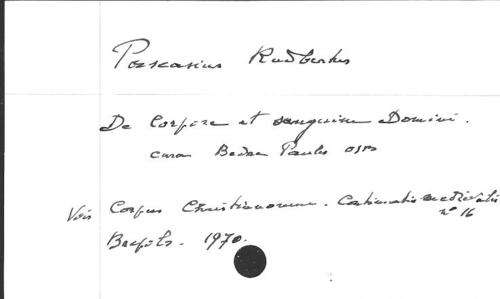 Pascasius Radbertus
De Corpore et sanguine Domini.
cura Bedae Paulus OSB
Voir Corpus Christianorum. Continuatio mediaevalis
n° 16
Brepols. 1970.